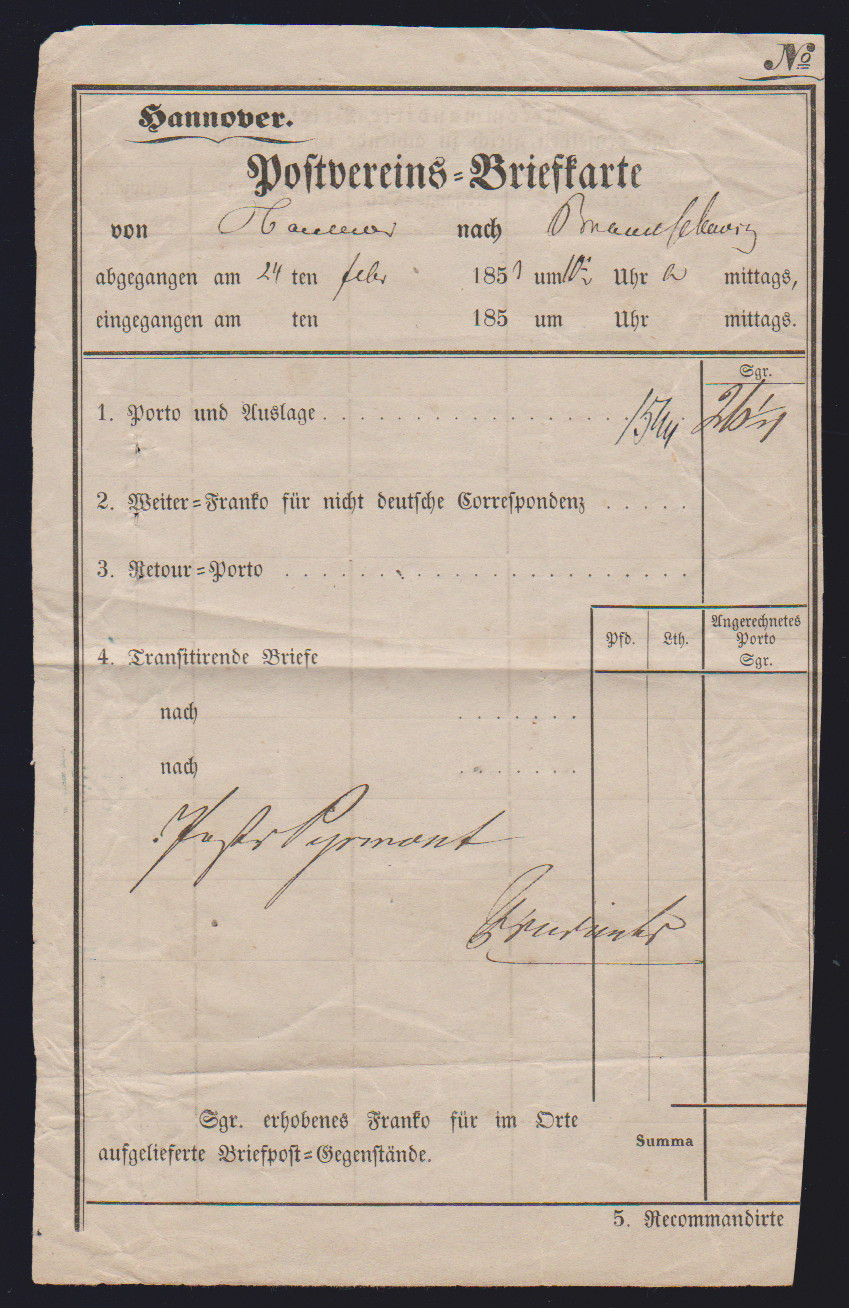 No
Hannover.
Postvereins=Briefkarte
von Hannover nach Braunschweig
abgegangen am 24 ten febr 185 um Uhr mittags,
eingegangen am ten 185 um Uhr mittags.
Sgr.
1. Porto und Auslage
2. Weiter=Franko für nicht deutsche Correspondenz
3. Retour=Porto
Pfd. Lth. Angerechnetes Porto Sgr.
4. Transitirende Briefe
nach
nach
Pyrmont
Sgr. erhobenes Franko für im Orte
aufgelieferte Briefpost=Gegenstände.
Summa
5. Recommandirte